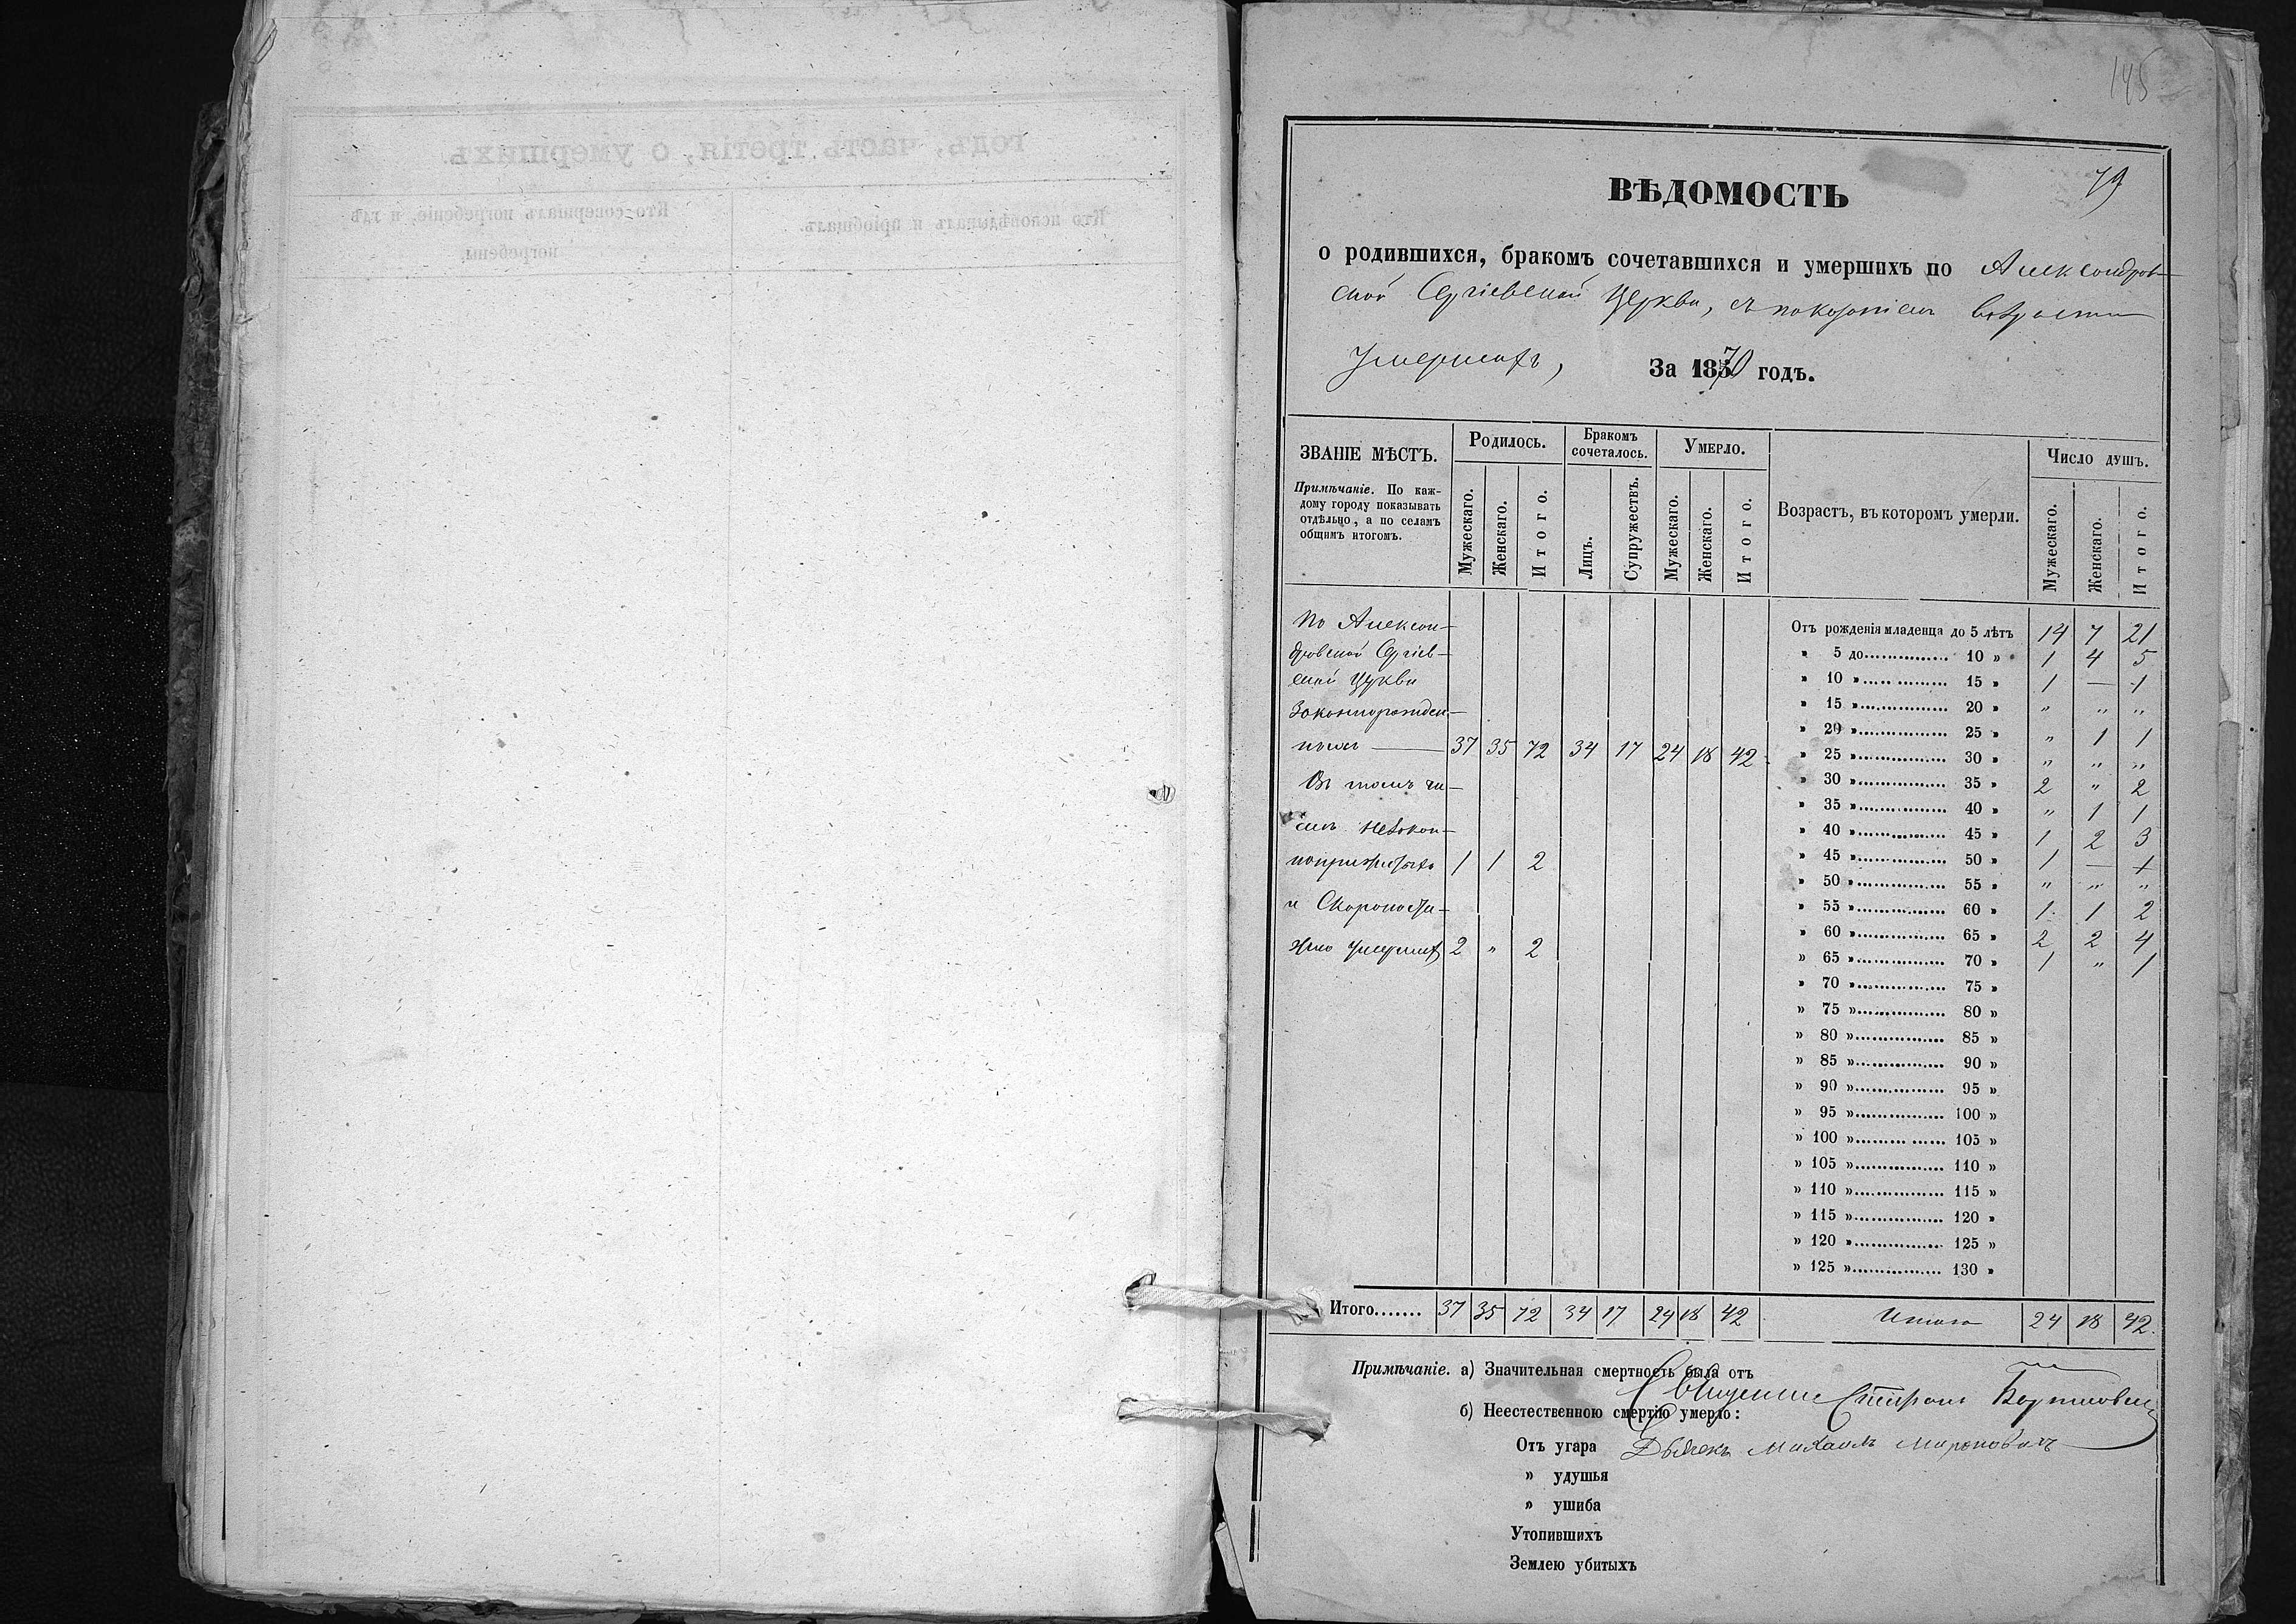 годъ, часть третія, о умершихъ.
Кто исповѣдывалъ и пріобщалъ.
Кто совершалъ погребеніе, и гдѣ
погребены.
145
79
ВѢДОМОСТЬ
о родившихся, бракомъ сочетавшихся и умершихъ по Александров-
ской Сергіевской Церкви, съ показаніемъ
умершихъ, За 1870 годъ.
ЗВАНІЕ МѢСТЪ.
Примѣчаніе. По каж-
дому городу показывать
отдѣльно, а по селамъ
общимъ итогомъ.
Родилось.
Мужескаго. Женскаго. Итого.
Бракомъ
сочеталось.
Лицъ. Супружествъ.
Умерло.
Мужескаго. Женскаго. Итого.
Возрастъ, въ которомъ умерли.
Число душъ.
Мужескаго. Женскаго. Итого.
По Алексан-
дровской Сергіев-
ской Церкви
Законнорожден-
ныхъ — 37 35 72 34 17 24 18 42
Въ томъ чи-
слѣ Незакон-
ноприжитыхъ 1 1 2
и Скоропости-
жно умершихъ 2 " 2
Отъ рожденія младенца до 5 лѣтъ 14 7 21
» 5 до................ 10 » 1 4 5
» 10 »................ 15 » 1 — 1
» 15 »................ 20 » " " "
» 20 »................ 25 » " 1 1
» 25 »................ 30 » " " "
» 30 »................ 35 » 2 " 2
» 35 »................ 40 » " 1 1
» 40 »................ 45 » 1 2 3
» 45 »................ 50 » 1 — 1
» 50 »................ 55 » " " "
» 55 »................ 60 » 1 1 2
» 60 »................ 65 » 2 2 4
» 65 »................ 70 » 1 " 1
» 70 »................ 75 »
» 75 »................ 80 »
» 80 »................ 85 »
» 85 »................ 90 »
» 90 »................ 95 »
» 95 »................ 100 »
» 100 »................ 105 »
» 105 »................ 110 »
» 110 »................ 115 »
» 115 »................ 120 »
» 120 »................ 125 »
» 125 »................ 130 »
Итого....... 37 35 72 34 17 24 18 42 Итого 24 18 42.
Примѣчаніе. а) Значительная смертность была отъ
Священникъ
б) Неестественною смертію умерло:
Отъ угара Дьячекъ Михаилъ Мироновичъ
» удушья
» ушиба
Утопившихъ
Землею убитыхъ